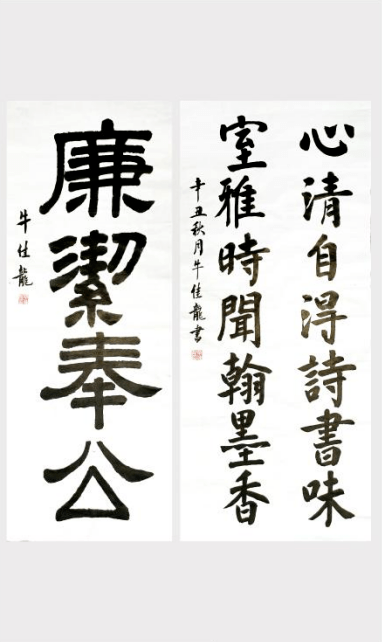 心清自得詩書味
室雅時聞翰墨香
辛丑秋月牛佳龍書
廉潔奉公
牛佳龍